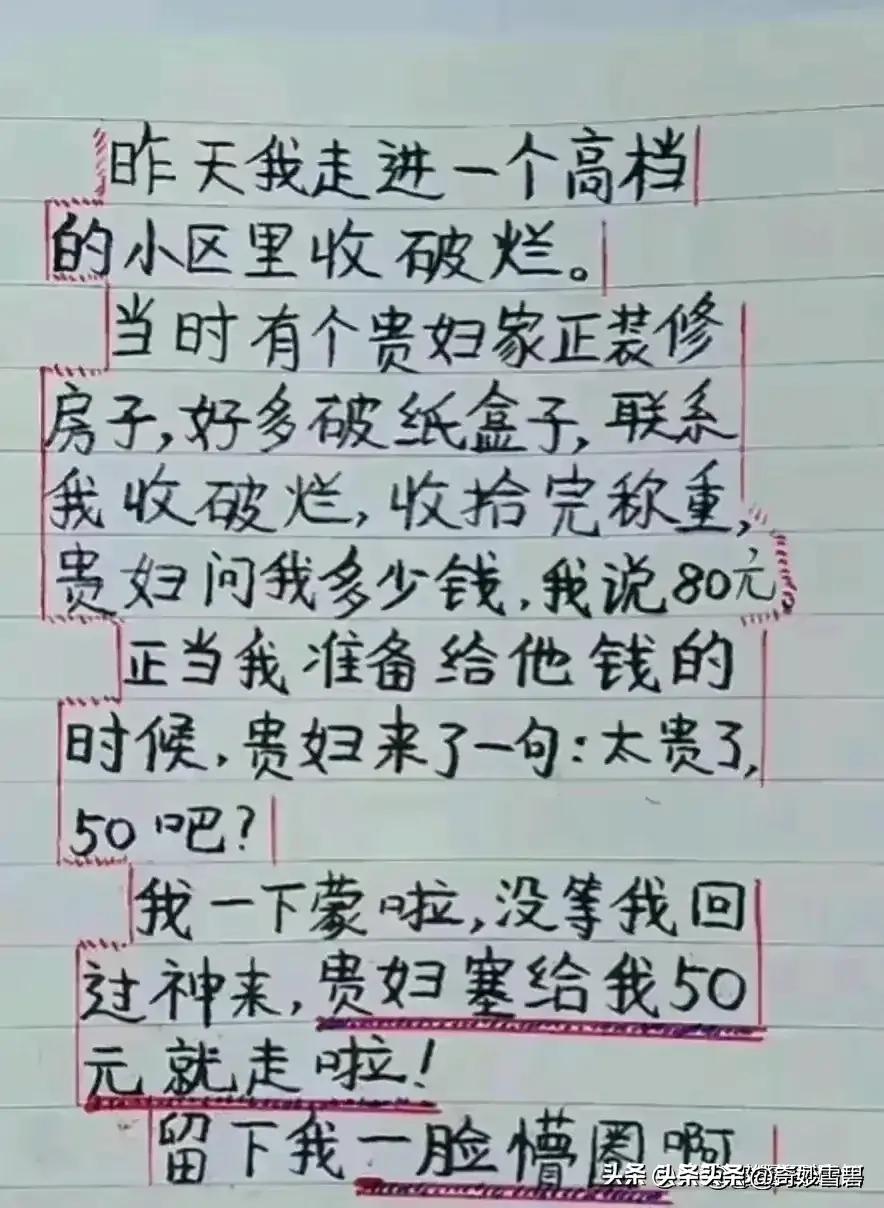 昨天我走进一个高档
的小区里收破烂。
当时有个贵妇家正装修
房子,好多破纸盒子,联系
我收破烂,收拾完称重,
贵妇问我多少钱,我说80元,
正当我准备给他钱的
时候,贵妇来了一句:太贵了,
50吧?
我一下蒙啦,没等我回
过神来,贵妇塞给我50
元就走啦!
留下我一脸懵圈啊
头条 @头条头条